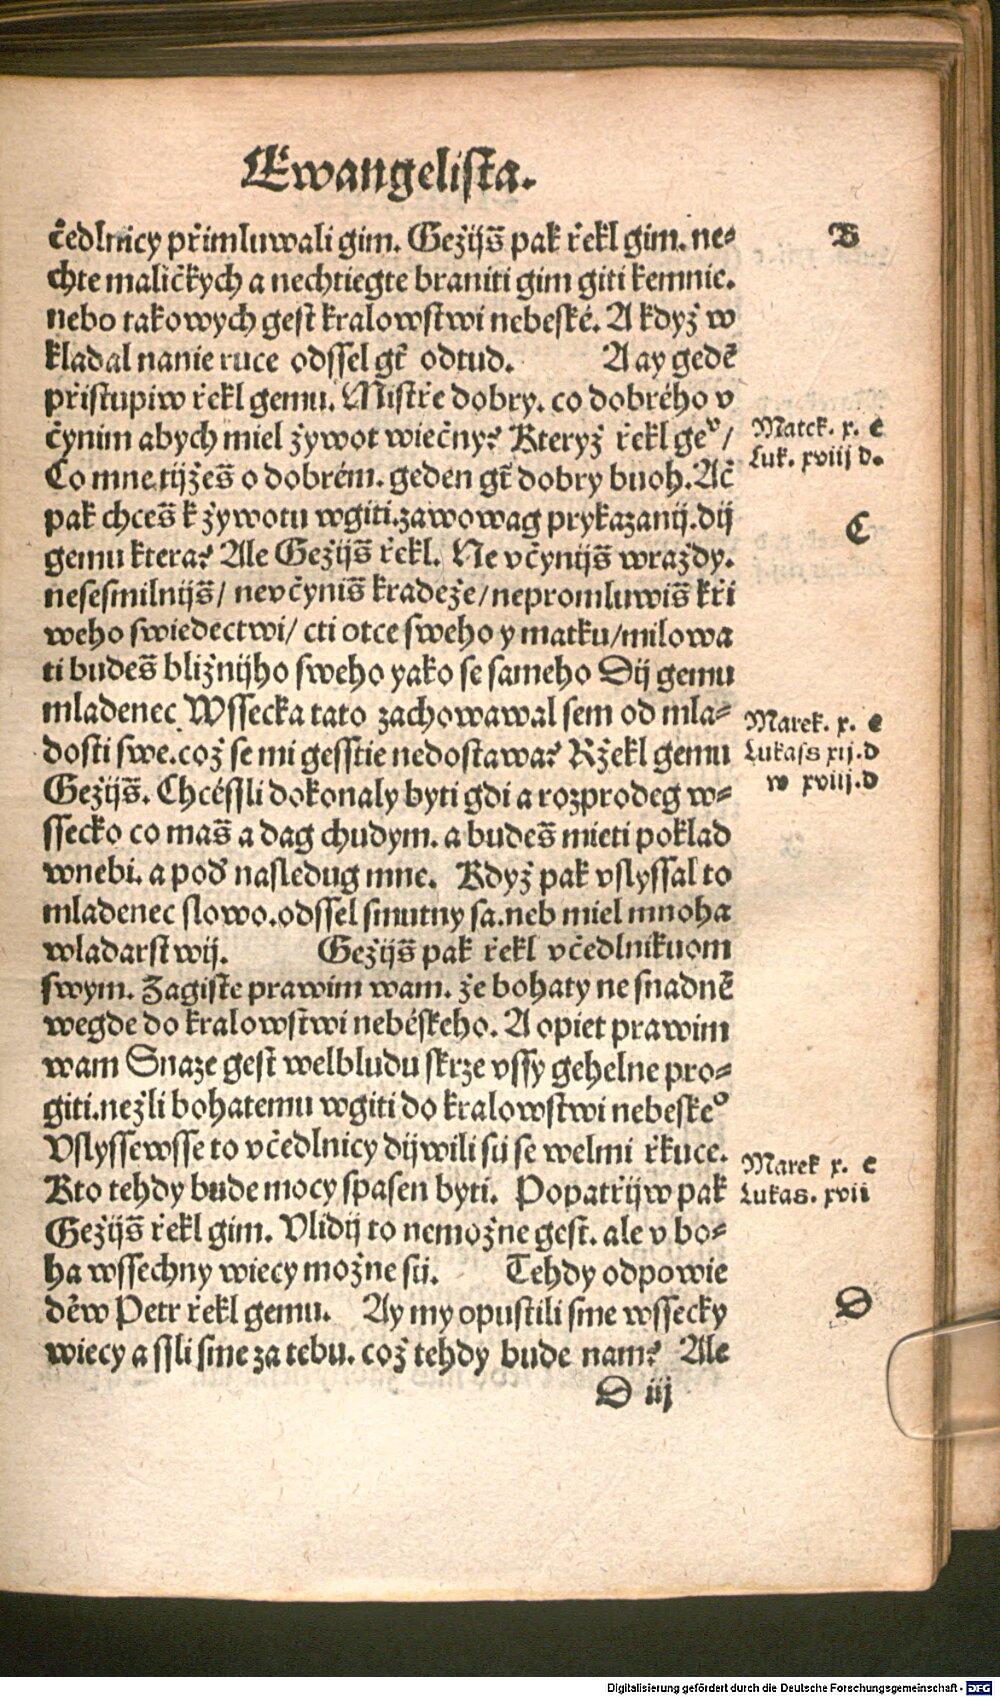 Ewangelista.
čedlnicy přimluwali gim. Gežijš pak řekl gim. ne-
chte maličkych a nechtiegte braniti gim giti kemnie.
nebo takowych gest kralowstwi nebeské. A když w
kladal nanie ruce odssel gt̄ odtud. A ay gedē
přistupiw řekl gemu. Mistře dobry. co dobrého v
čynim abych miel žywot wiečny? Kteryž řekl geº /
Co mne tijžeš o dobrém. geden gt̄ dobry buoh. Ač
pak chceš k žywotu wgiti. zawowag prykazanij. dij
gemu ktera? Ale Gežijš řekl. Ne včynijš wraždy.
nesesmilnijš / nevčyniš kradeže / nepromluwiš kři
weho swiedectwi / cti otce sweho y matku / milowa
ti budeš bližnijho sweho yako se sameho Dij gemu
mladenec Wssecka tato zachowawal sem od mla-
dosti swe. což se mi gesstie nedostawa? Ržekl gemu
Gežijš. Chcéssli dokonaly byti gdi a rozprodeg w-
ssecko co maš a dag chudym. a budeš mieti poklad
wnebi. a pod' nasledug mne. Když pak vslyssal to
mladenec slowo. odssel smutny sa. neb miel mnoha
wladarstwij. Gežijš pak řekl včedlnikuom
swym. Zagiste prawim wam. že bohaty ne snadnē
wegde do kralowstwi nebéskeho. A opiet prawim
wam Snaze gest welbludu skrze vssy gehelne pro-
giti. nežli bohatemu wgiti do kralowstwi nebeskeº
Vslyssewsse to včedlnicy dijwili sú se welmi řkuce.
Kto tehdy bude mocy spasen byti. Popatřijw pak
Gežijš řekl gim. Vlidij to nemožne gest. ale v bo-
ha wssechny wiecy možne sú. Tehdy odpowie
děw Petr řekl gemu. Ay my opustili sme wssecky
wiecy a ssli sme za tebu. což tehdy bude nam? Ale
D iij
B
Matck. x. e
Luk. xviij d.
C
Marek. x. e
Lukass xij. d
w xviij. d
Marek x. e
Lukas. xvii
D
Digitalisierung gefördert durch die Deutsche Forschungsgemeinschaft - DFG